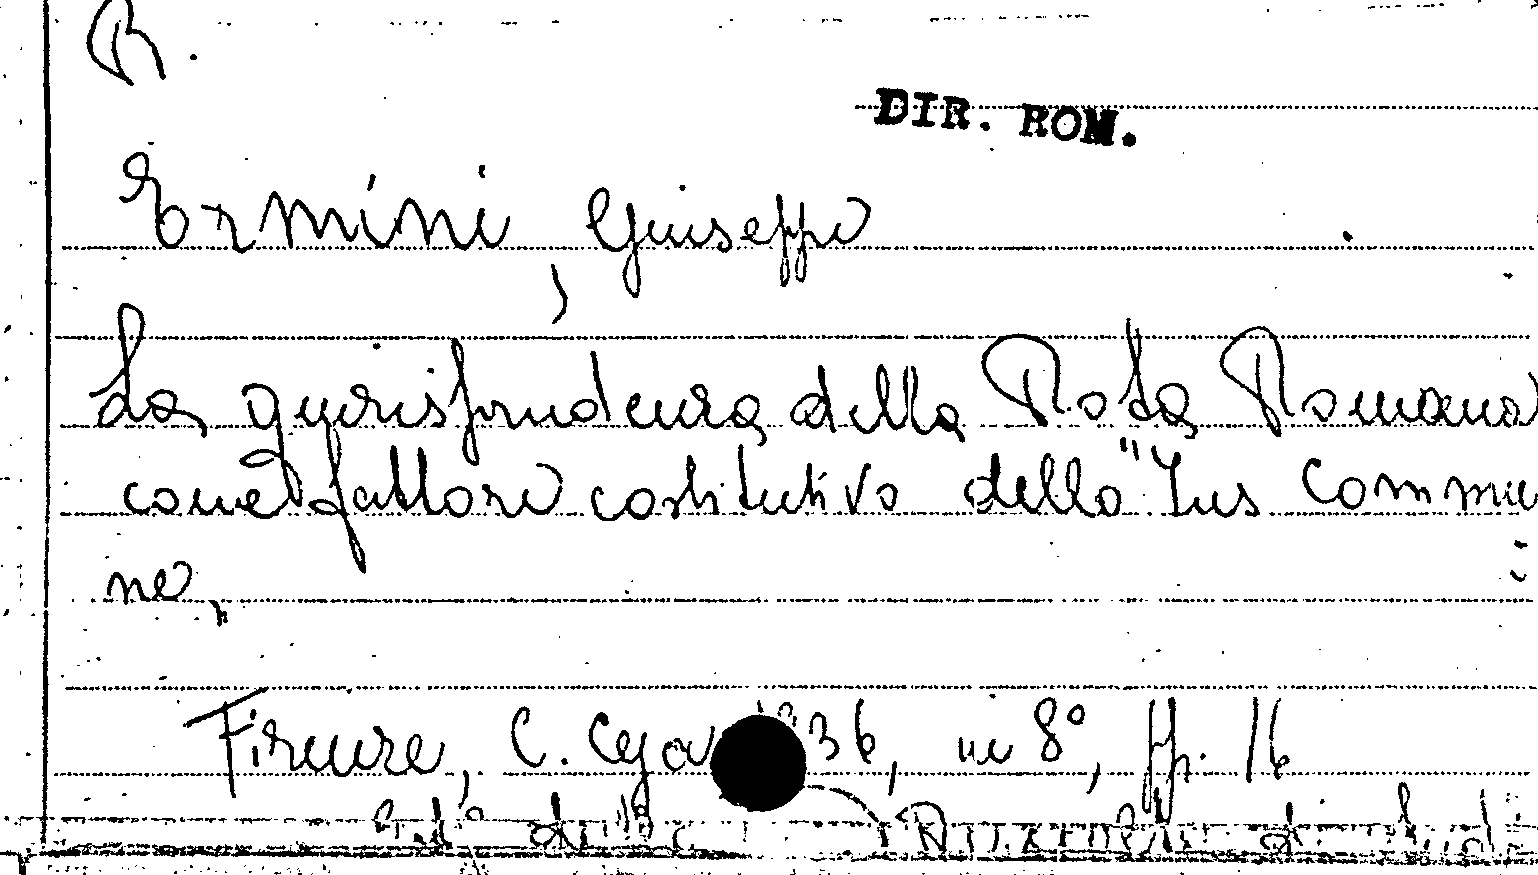 R.
DIR. ROM.
Ermini, Giuseppe
La giurisprudenza della Rota Romana
come fattore costitutivo dello "Ius Commu
ne,,
Firenze, C. Cya 1936, in 8°, pp. 16